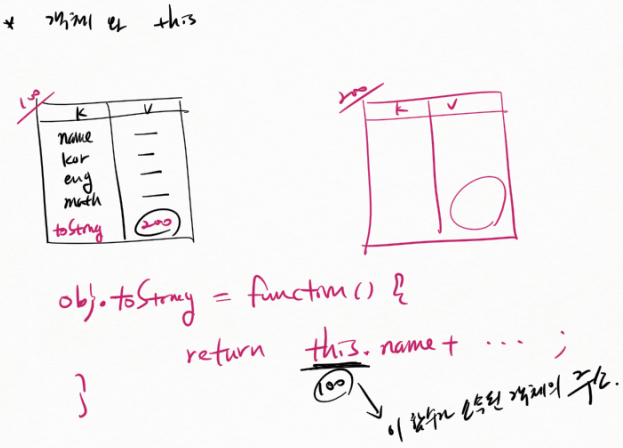 * 객체 와 this
100 200
K V K V
name —
kor —
eng —
math —
toString 200
obj.toString = function() {
return this.name + ... ;
100
}
이 함수가 소속된 객체의 주소.